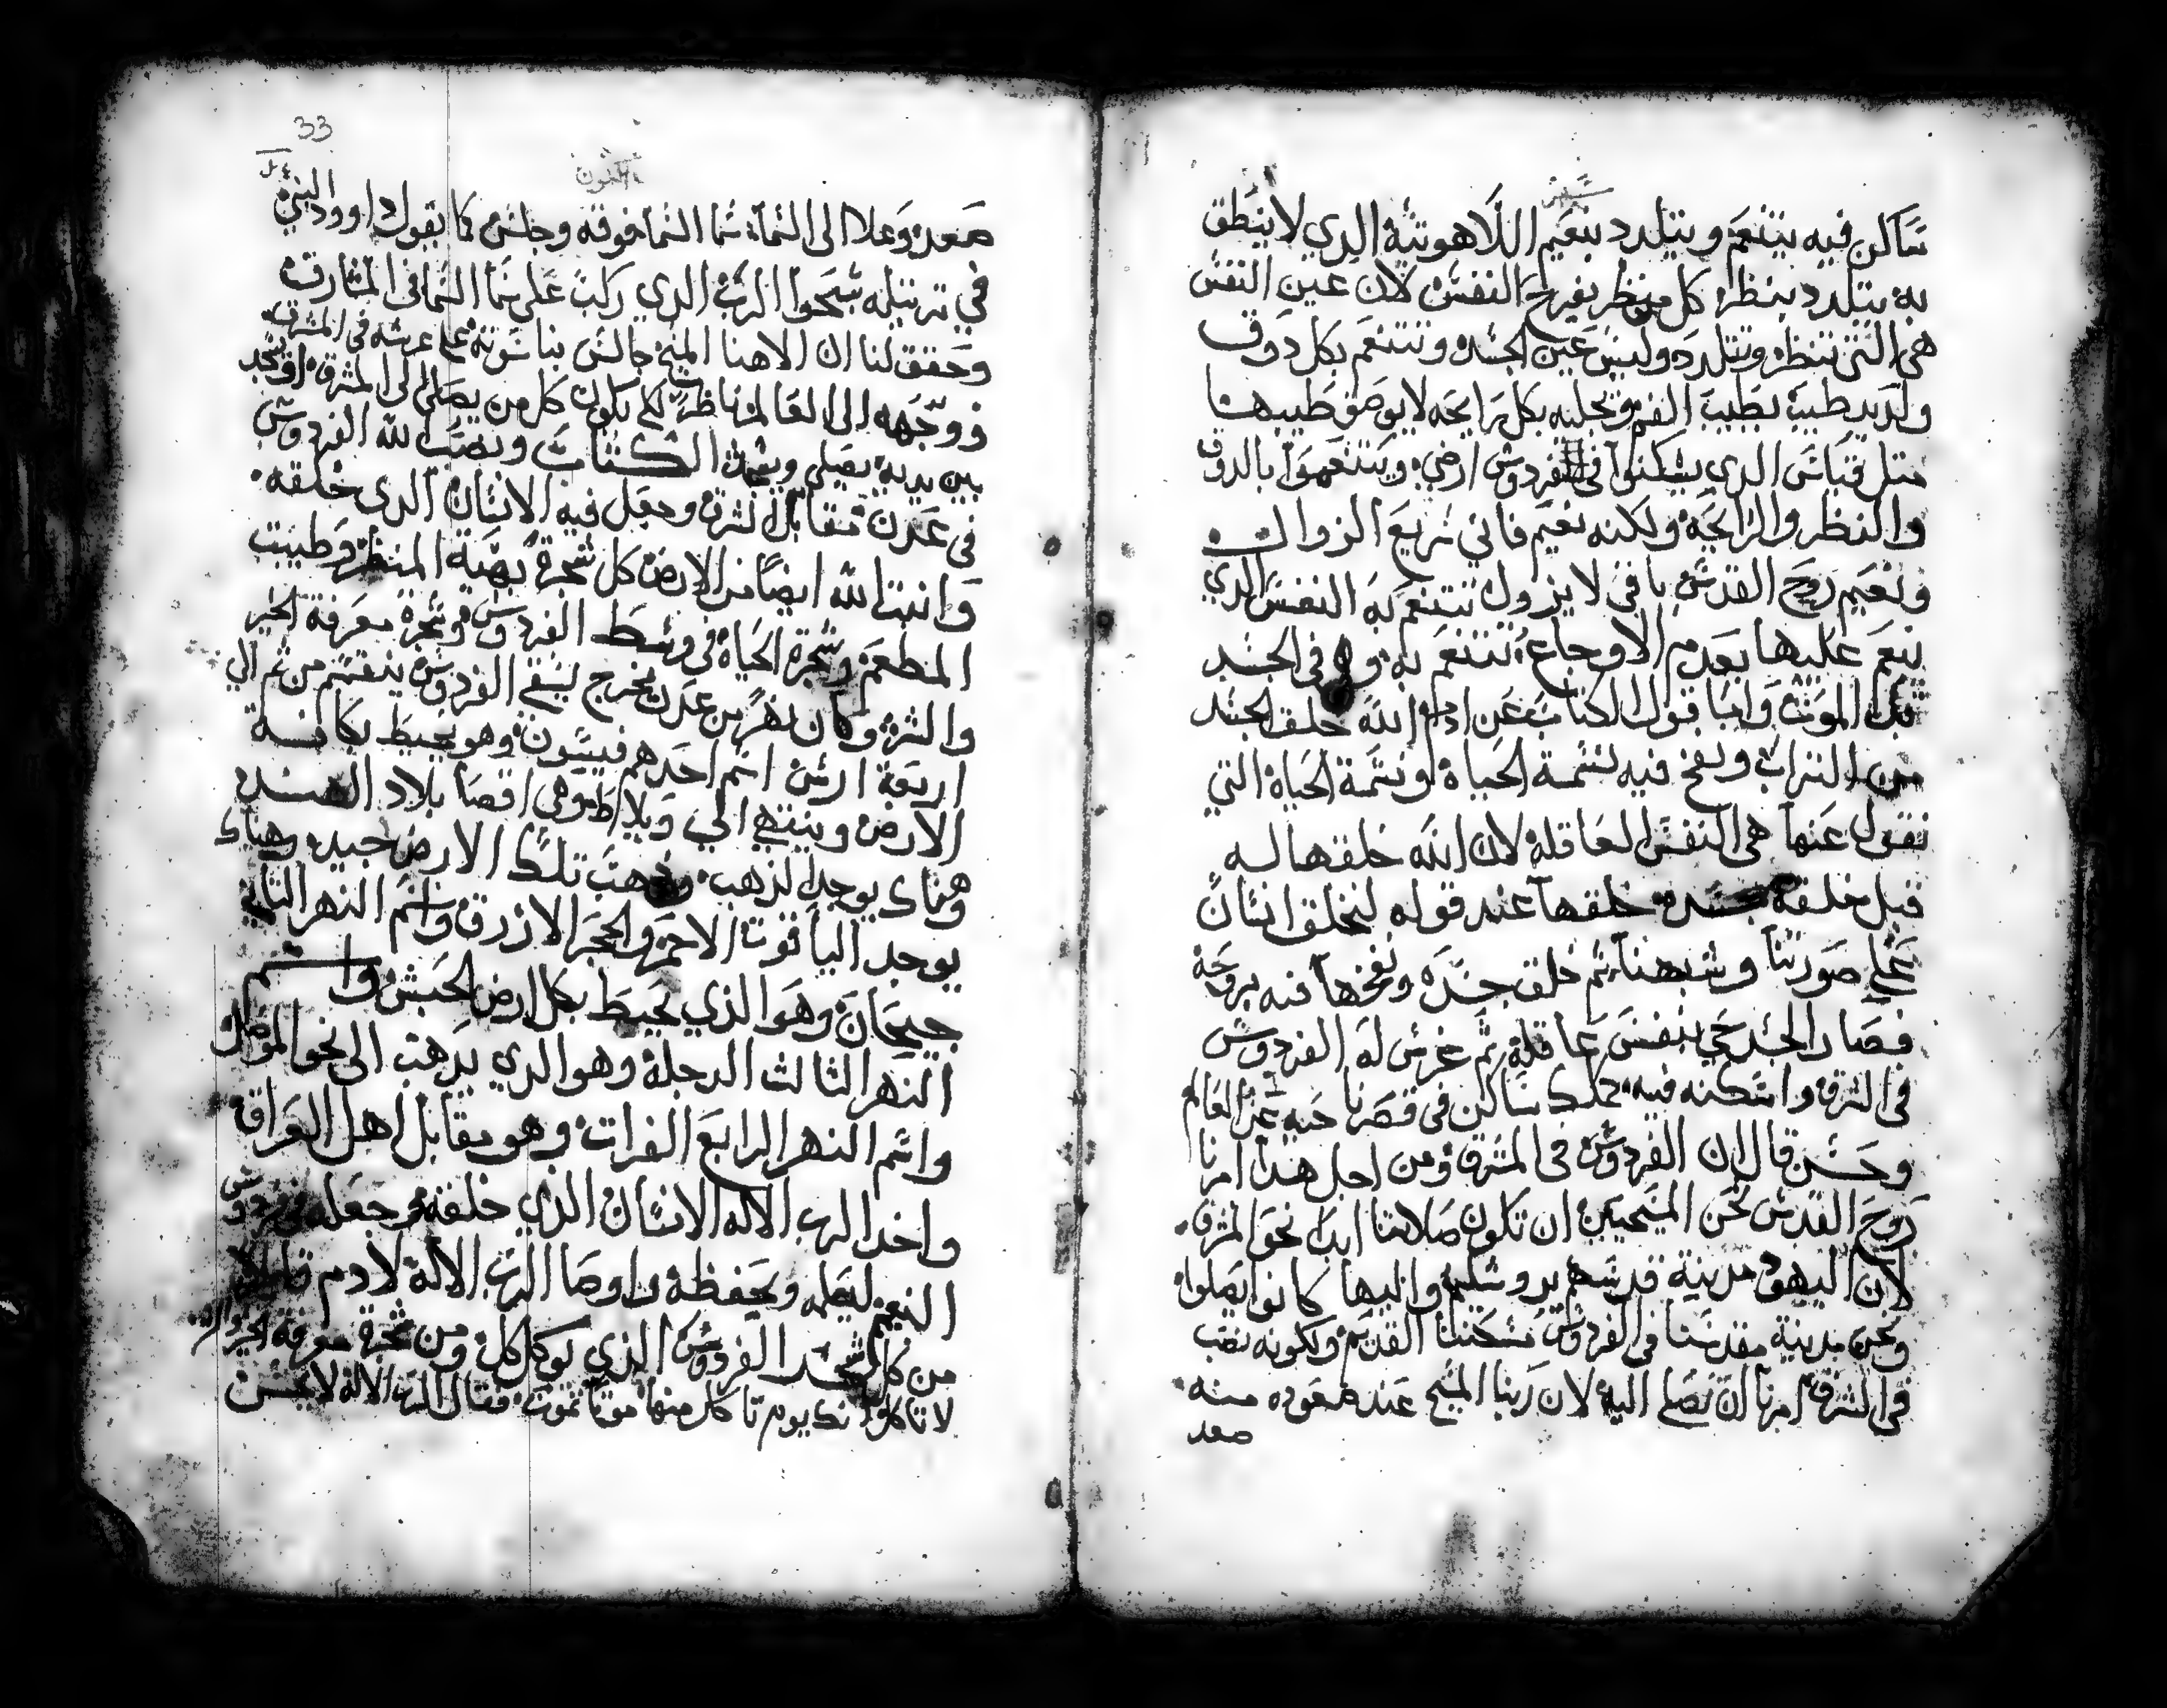 ساكن فيه يتنعم ويتلدد بنعيم اللاهوتية الدي لا ينطق
به يتلدد بنظره كل منظر يفرح النفس لان عين النفس
هي التي تنظر وتتلدد وليس عين الجسد وتتنعم بكل دوق
ولديد طيب بطيب الفم وبجلبه بكل رايحه لا يوصف طيبها
متل قياس الدي يسكنوا في الفردوس ارضي ويتنعموا بالدوق
والنظر والرايحة ولكنه نعيم فاني سريع الزوال
ونعيم روح القدس باقي لا يزول تتنعم به النفس الدي
ينعم عليها بعدم الاوجاع تتنعم به وفي الجسد
قبل الموت واما قول الكتاب عن ادم ان الله خلق الجسد
من التراب ونفخ فيه نسمة الحياة ونسمة الحياة التي
نقول عنها هي النفس العاقله لان الله خلقها له
قبل خلقة جسده خلقها عند قوله لنخلق انسان
على صورتنا وشبهنا ثم خلق جسده ونفخها فيه بروحه
فصار الجسد حي بنفس عاقلة ثم غرس له الفردوس
في الشرق واسكنه فيه ملك ساكن في قصرنا حيه عن العالم
وحسن قال ان الفردوس في المشرق ومن اجل هدا امرنا
روح القدس نحن المسيحيين ان تكون صلاتنا ابدا نحو المشرق
لان اليهود مدينة قدسهم يروشليم واليها كانوا يصلوا
ونحن مدينة مقدسنا في الفردوس مسكننا القديم ولكونه نصب
في الشرق امرنا ان نصلي اليه لان ربنا المسيح عند صعوده منه
صعد
33
صعد وعلا الى السماء سما السما فوقه وجلس كما يقول داوود النبي
في ترتيله سبحوا الرب الدي ركب على سما السما في المشارق
وحقق لنا ان الاهنا المسيح جالس بناسوته على عرشه في المشرق
ووجهه الى العالم ناظر لكي يكون كل من يصلي الى المشرق يجد
بين يديه يصلي ويشهد الكتاب ونصب الله الفردوس
في عدن مقابل الشرق وجعل فيه الانسان الدي خلقه
وانبت الله ايضا من الارض كل شجرة بهية المنظر وطيبت
المطعم وشجرة الحياة في وسط الفردوس وشجرة معرفة الخير
والشر وكان نهر من عدن يخرج ليسقي الفردوس ينقسم من ثم الي
اربعة ارش اسم احدهم فيسون وهو يحيط بكافة
الارض وينتهي الي وهي اقصا بلاد الهند
وهناك يوجد الذهب ودهب تلك الارض جيد وهناك
يوجد الياقوت الاحمر والحجر الازرق واسم النهر التاني
جيحان وهو الذي يحيط بكل ارض الحبش واسم
النهر الثالث الدجلة وهو الدي يدهب الى نحو الموصل
واسم النهر الرابع الفرات وهو مقابل اهل العراق
واخد الرب الاله الانسان الذي خلقه وجعله في فردوس
النعيم ليعمله ويحفظه واوصا الرب الاله لادم قايلا
من كل شجر الفردوس الذي توكل كل ومن شجرة معرفة الخير والشر
لا تاكلوا انك يوم تاكل منها موتا تموت فقال الرب الاله لا يحسن